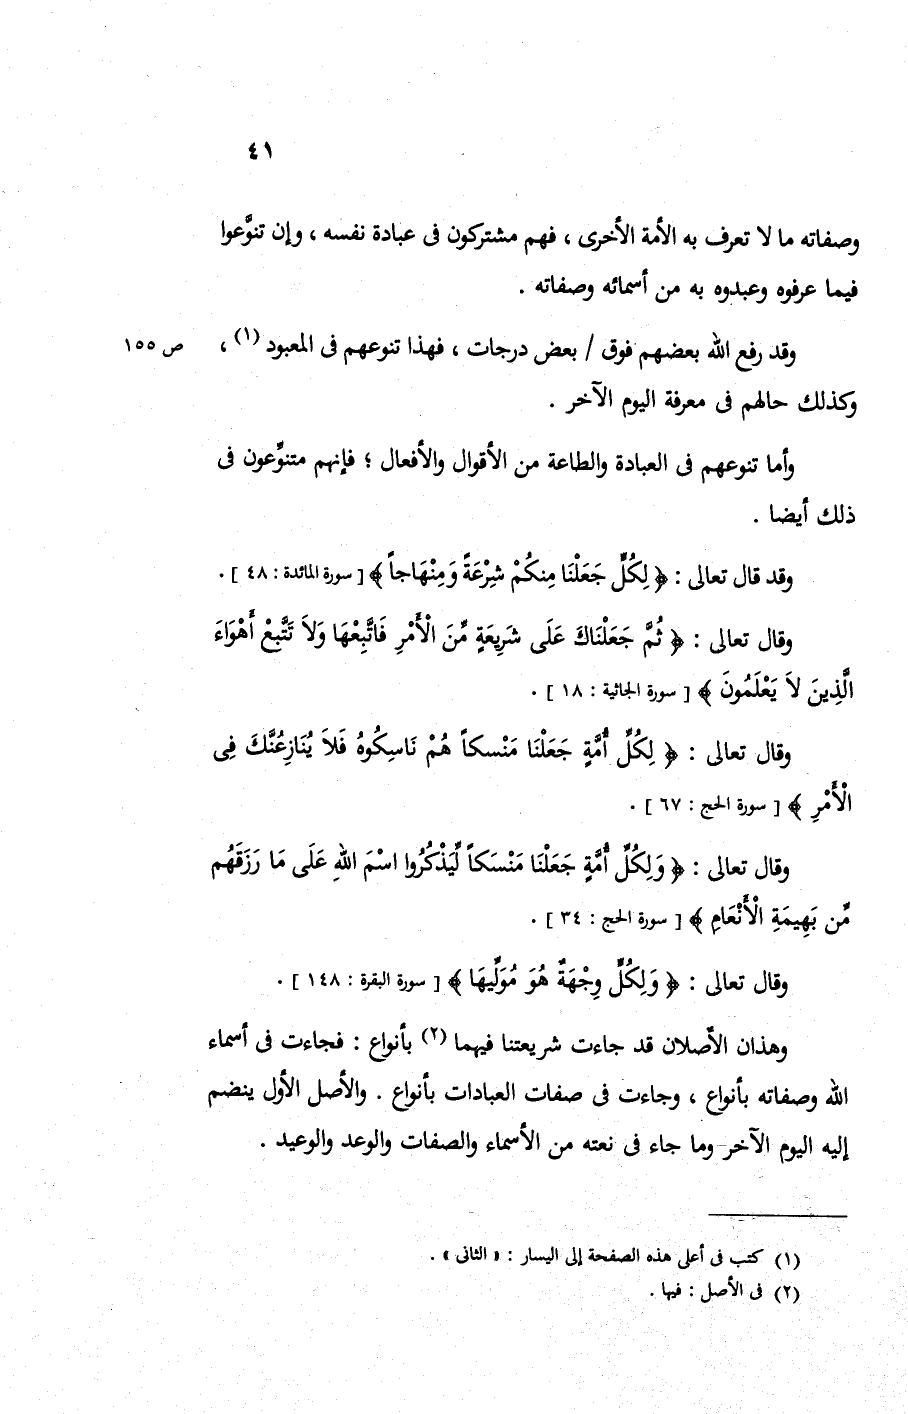 ٤١
وصفاته ما لا تعرف به الأمة الأخرى ، فهم مشتركون فى عبادة نفسه ، وإن تنوَّعوا
فيما عرفوه وعبدوه به من أسمائه وصفاته .
وقد رفع الله بعضهم فوق / بعض درجات ، فهذا تنوعهم فى المعبود (١) ، ص ١٥٥
وكذلك حالهم فى معرفة اليوم الآخر .
وأما تنوعهم فى العبادة والطاعة من الأقوال والأفعال ؛ فإنهم متنوِّعون فى
ذلك أيضا .
وقد قال تعالى : ﴿ لِكُلٍّ جَعَلْنَا مِنكُمْ شِرْعَةً وَمِنْهَاجاً ﴾ [ سورة المائدة : ٤٨ ] .
وقال تعالى : ﴿ ثُمَّ جَعَلْنَاكَ عَلَى شَرِيعَةٍ مِّنَ الْأَمْرِ فَاتَّبِعْهَا وَلاَ تَتَّبِعْ أَهْوَاءَ
الَّذِينَ لاَ يَعْلَمُونَ ﴾ [ سورة الجاثية : ١٨ ] .
وقال تعالى : ﴿ لِكُلِّ أُمَّةٍ جَعَلْنَا مَنْسكاً هُمْ نَاسِكُوهُ فَلاَ يُنَازِعُنَّكَ فِى
الْأَمْرِ ﴾ [ سورة الحج : ٦٧ ] .
وقال تعالى : ﴿ وَلِكُلِّ أُمَّةٍ جَعَلْنَا مَنْسَكاً لِّيَذْكُرُوا اسْمَ اللهِ عَلَى مَا رَزَقَهُم
مِّن بَهِيمَةِ الْأَنْعَامِ ﴾ [ سورة الحج : ٣٤ ] .
وقال تعالى : ﴿ وَلِكُلٍّ وِجْهَةٌ هُوَ مُوَلِّيهَا ﴾ [ سورة البقرة : ١٤٨ ] .
وهذان الأصلان قد جاءت شريعتنا فيهما (٢) بأنواع : فجاءت فى أسماء
الله وصفاته بأنواع ، وجاءت فى صفات العبادات بأنواع . والأصل الأول ينضم
إليه اليوم الآخر وما جاء فى نعته من الأسماء والصفات والوعد والوعيد .
(١) كتب فى أعلى هذه الصفحة إلى اليسار : « الثانى » .
(٢) فى الأصل : فيها .